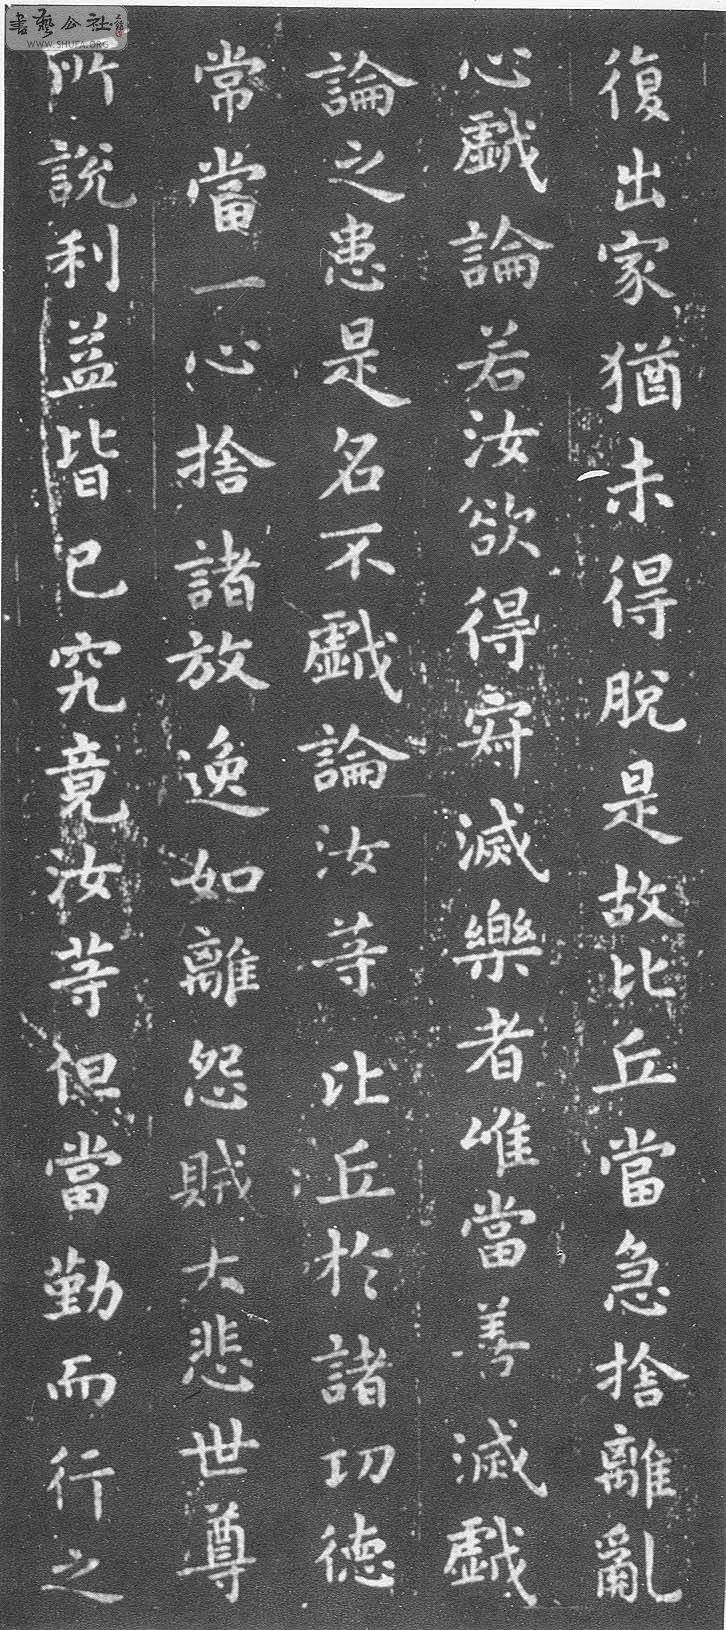 復出家猶未得脫是故比丘當急捨離亂
心戱論若汝欲得寂滅樂者唯當善滅戱
論之患是名不戱論汝等比丘於諸功德
常當一心捨諸放逸如離怨賊大悲世尊
所說利益皆已究竟汝等但當勤而行之
書藝公社
WWW.SHUFA.ORG